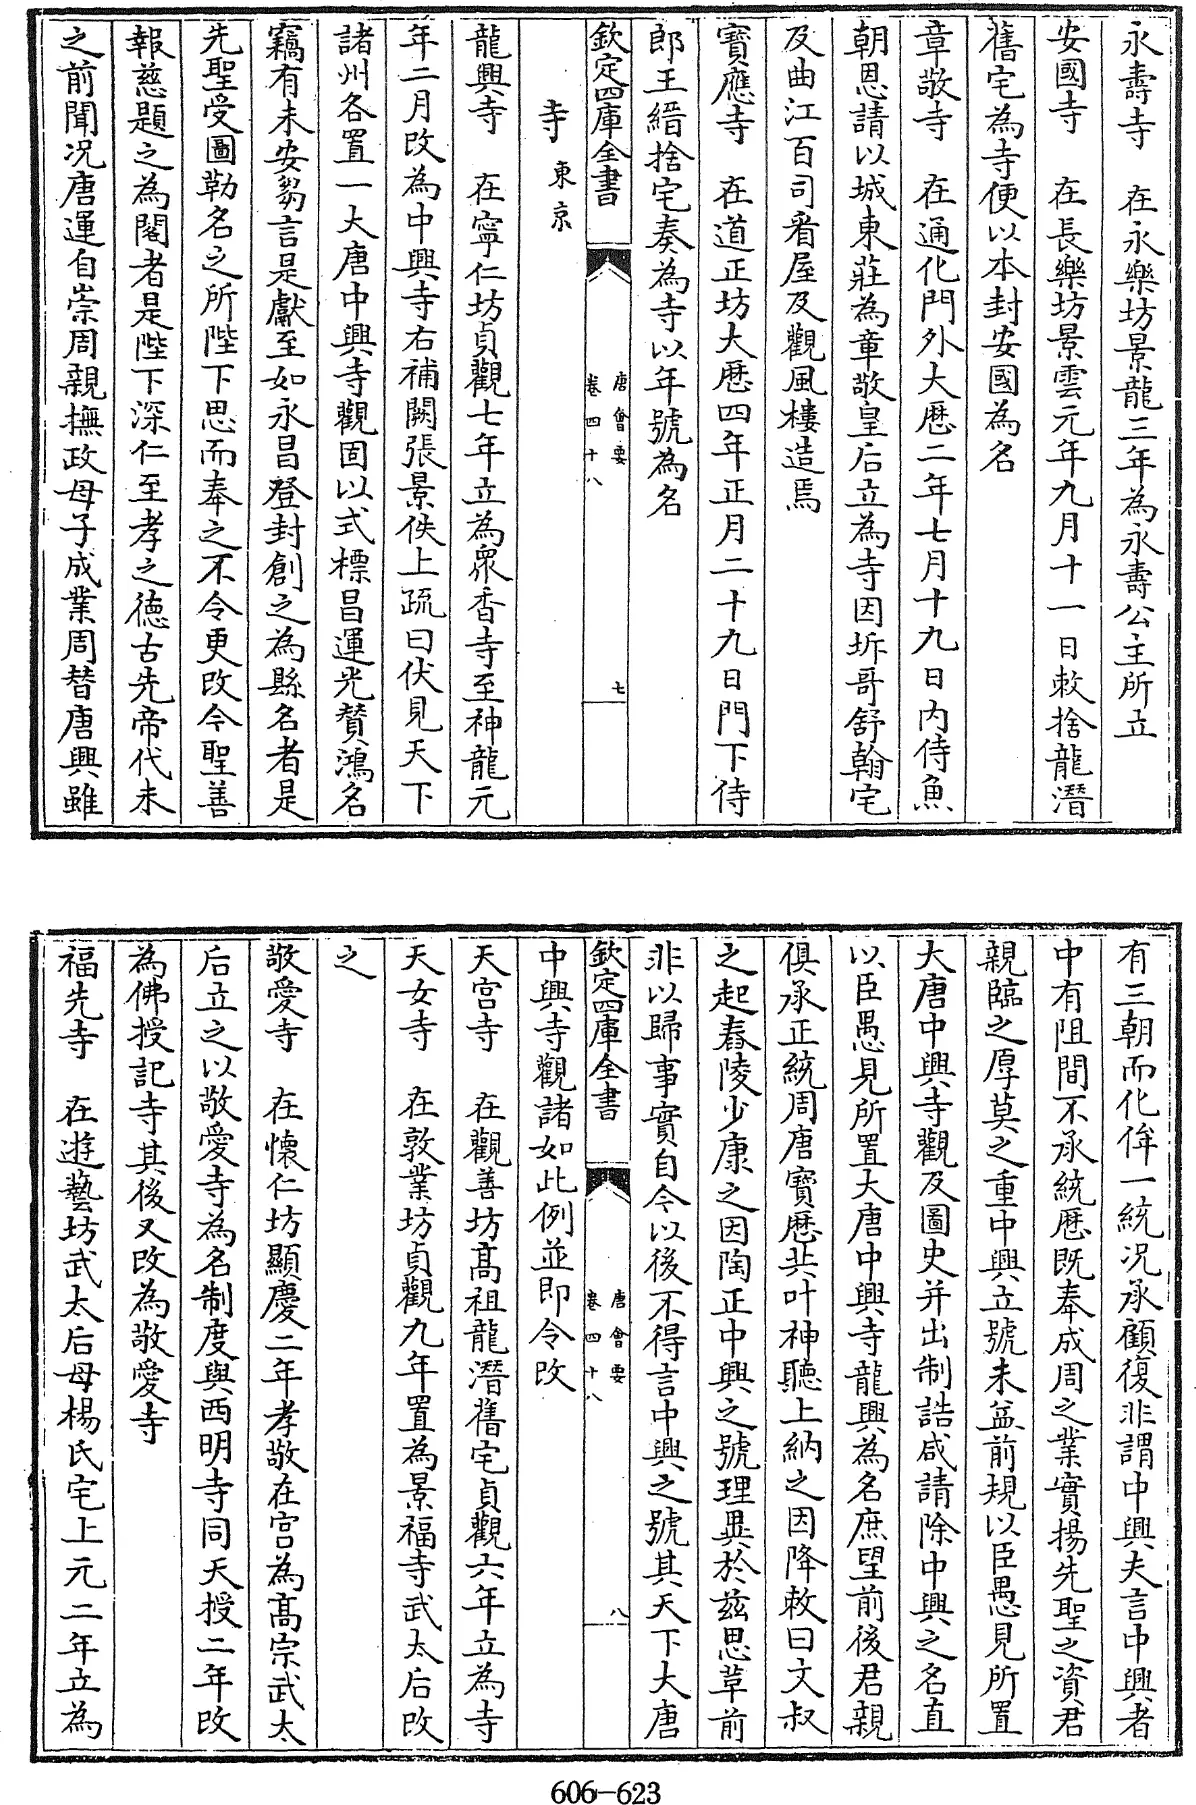 永壽寺　在永樂坊景龍三年為永壽公主所立
安國寺　在長樂坊景雲元年九月十一日敕捨龍潛
舊宅為寺便以本封安國為名
章敬寺　在通化門外大厯二年七月十九日内侍魚
朝恩請以城東莊為章敬皇后立為寺因坼哥舒翰宅
及曲江百司看屋及觀風樓造焉
寶應寺　在道正坊大厯四年正月二十九日門下侍
郎王縉捨宅奏為寺以年號為名
欽定四庫全書
唐會要
卷四十八
七
寺東京
龍興寺　在寧仁坊貞觀七年立為衆香寺至神龍元
年二月改為中興寺右補闕張景佚上疏曰伏見天下
諸州各置一大唐中興寺觀固以式標昌運光贊鴻名
竊有未安芻言是獻至如永昌登封創之為縣名者是
先聖受圖勒名之所陛下思而奉之不令更改今聖善
報慈題之為閣者是陛下深仁至孝之德古先帝代未
之前聞况唐運自崇周親撫政母子成業周替唐興雖
有三朝而化侔一統况承顧復非謂中興夫言中興者
中有阻間不承統厯既奉成周之業實揚先聖之資君
親臨之厚莫之重中興立號未益前規以臣愚見所置
大唐中興寺觀及圖史并出制誥咸請除中興之名直
以臣愚見所置大唐中興寺龍興為名庶望前後君親
俱承正統周唐寶厯共叶神聽上納之因降敕曰文叔
之起舂陵少康之因陶正中興之號理異於兹思革前
非以歸事實自今以後不得言中興之號其天下大唐
欽定四庫全書
唐會要
卷四十八
八
中興寺觀諸如此例並即令改
天宫寺　在觀善坊髙祖龍潛舊宅貞觀六年立為寺
天女寺　在敦業坊貞觀九年置為景福寺武太后改
之
敬愛寺　在懷仁坊顯慶二年孝敬在宫為髙宗武太
后立之以敬愛寺為名制度與西明寺同天授二年改
為佛授記寺其後又改為敬愛寺
福先寺　在遊藝坊武太后母楊氏宅上元二年立為
606-623